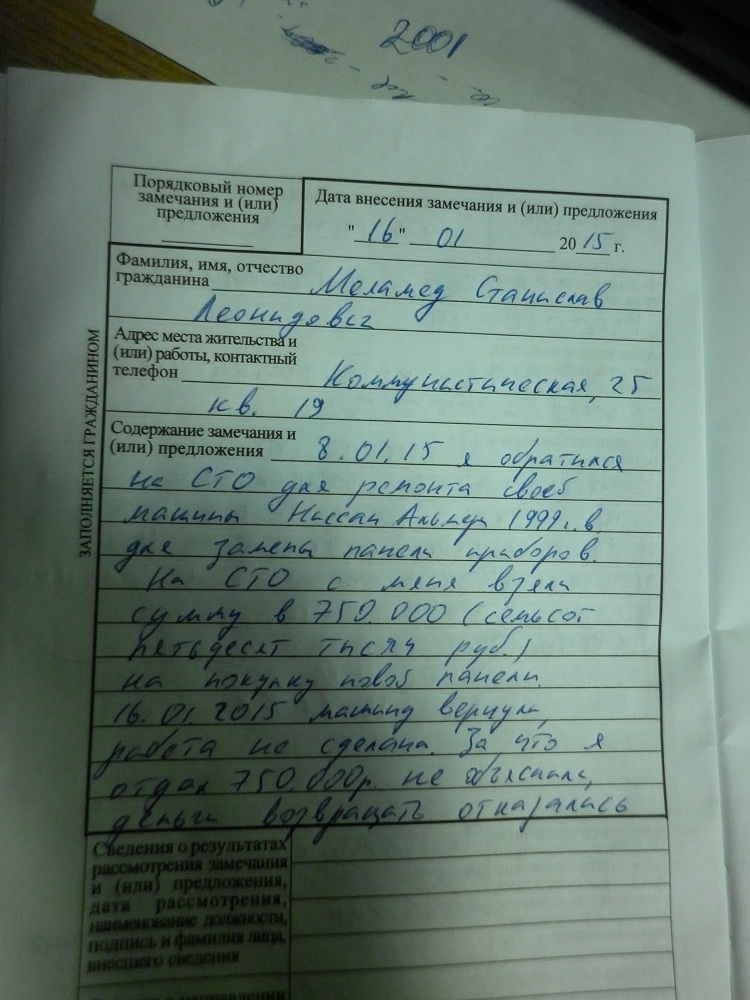 2001
Порядковый номер
замечания и (или)
предложения
Дата внесения замечания и (или) предложения
"16" 01 2015 г.
Фамилия, имя, отчество
гражданина Меламед Станислав
Леонидович
Адрес места жительства и
(или) работы, контактный
телефон Коммунистическая, 25
кв. 19
Содержание замечания и
(или) предложения 8.01.15 я обратился
на СТО для ремонта своей
машины Ниссан Альмера 1999г.в
для замены панели приборов.
На СТО с меня взяли
сумму в 750.000 (семьсот
пятьдесят тысяч руб.)
на покупку новой панели.
16.01.2015 машину вернули,
работа не сделана. За что я
отдал 750.000р. не объяснили,
деньги возвращать отказались
ЗАПОЛНЯЕТСЯ ГРАЖДАНИНОМ
Сведения о результатах
рассмотрения замечания
и (или) предложения,
дата рассмотрения,
наименование должности,
подпись и фамилия лица,
внесшего сведения
о направлении